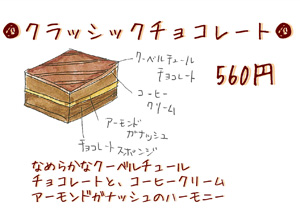 クラッシックチョコレート
クーベルチュール
チョコレート
560円
コーヒー
クリーム
アーモンド
ガナッシュ
チョコレートスポンジ
なめらかなクーベルチュール
チョコレートと、コーヒークリーム
アーモンドガナッシュのハーモニー